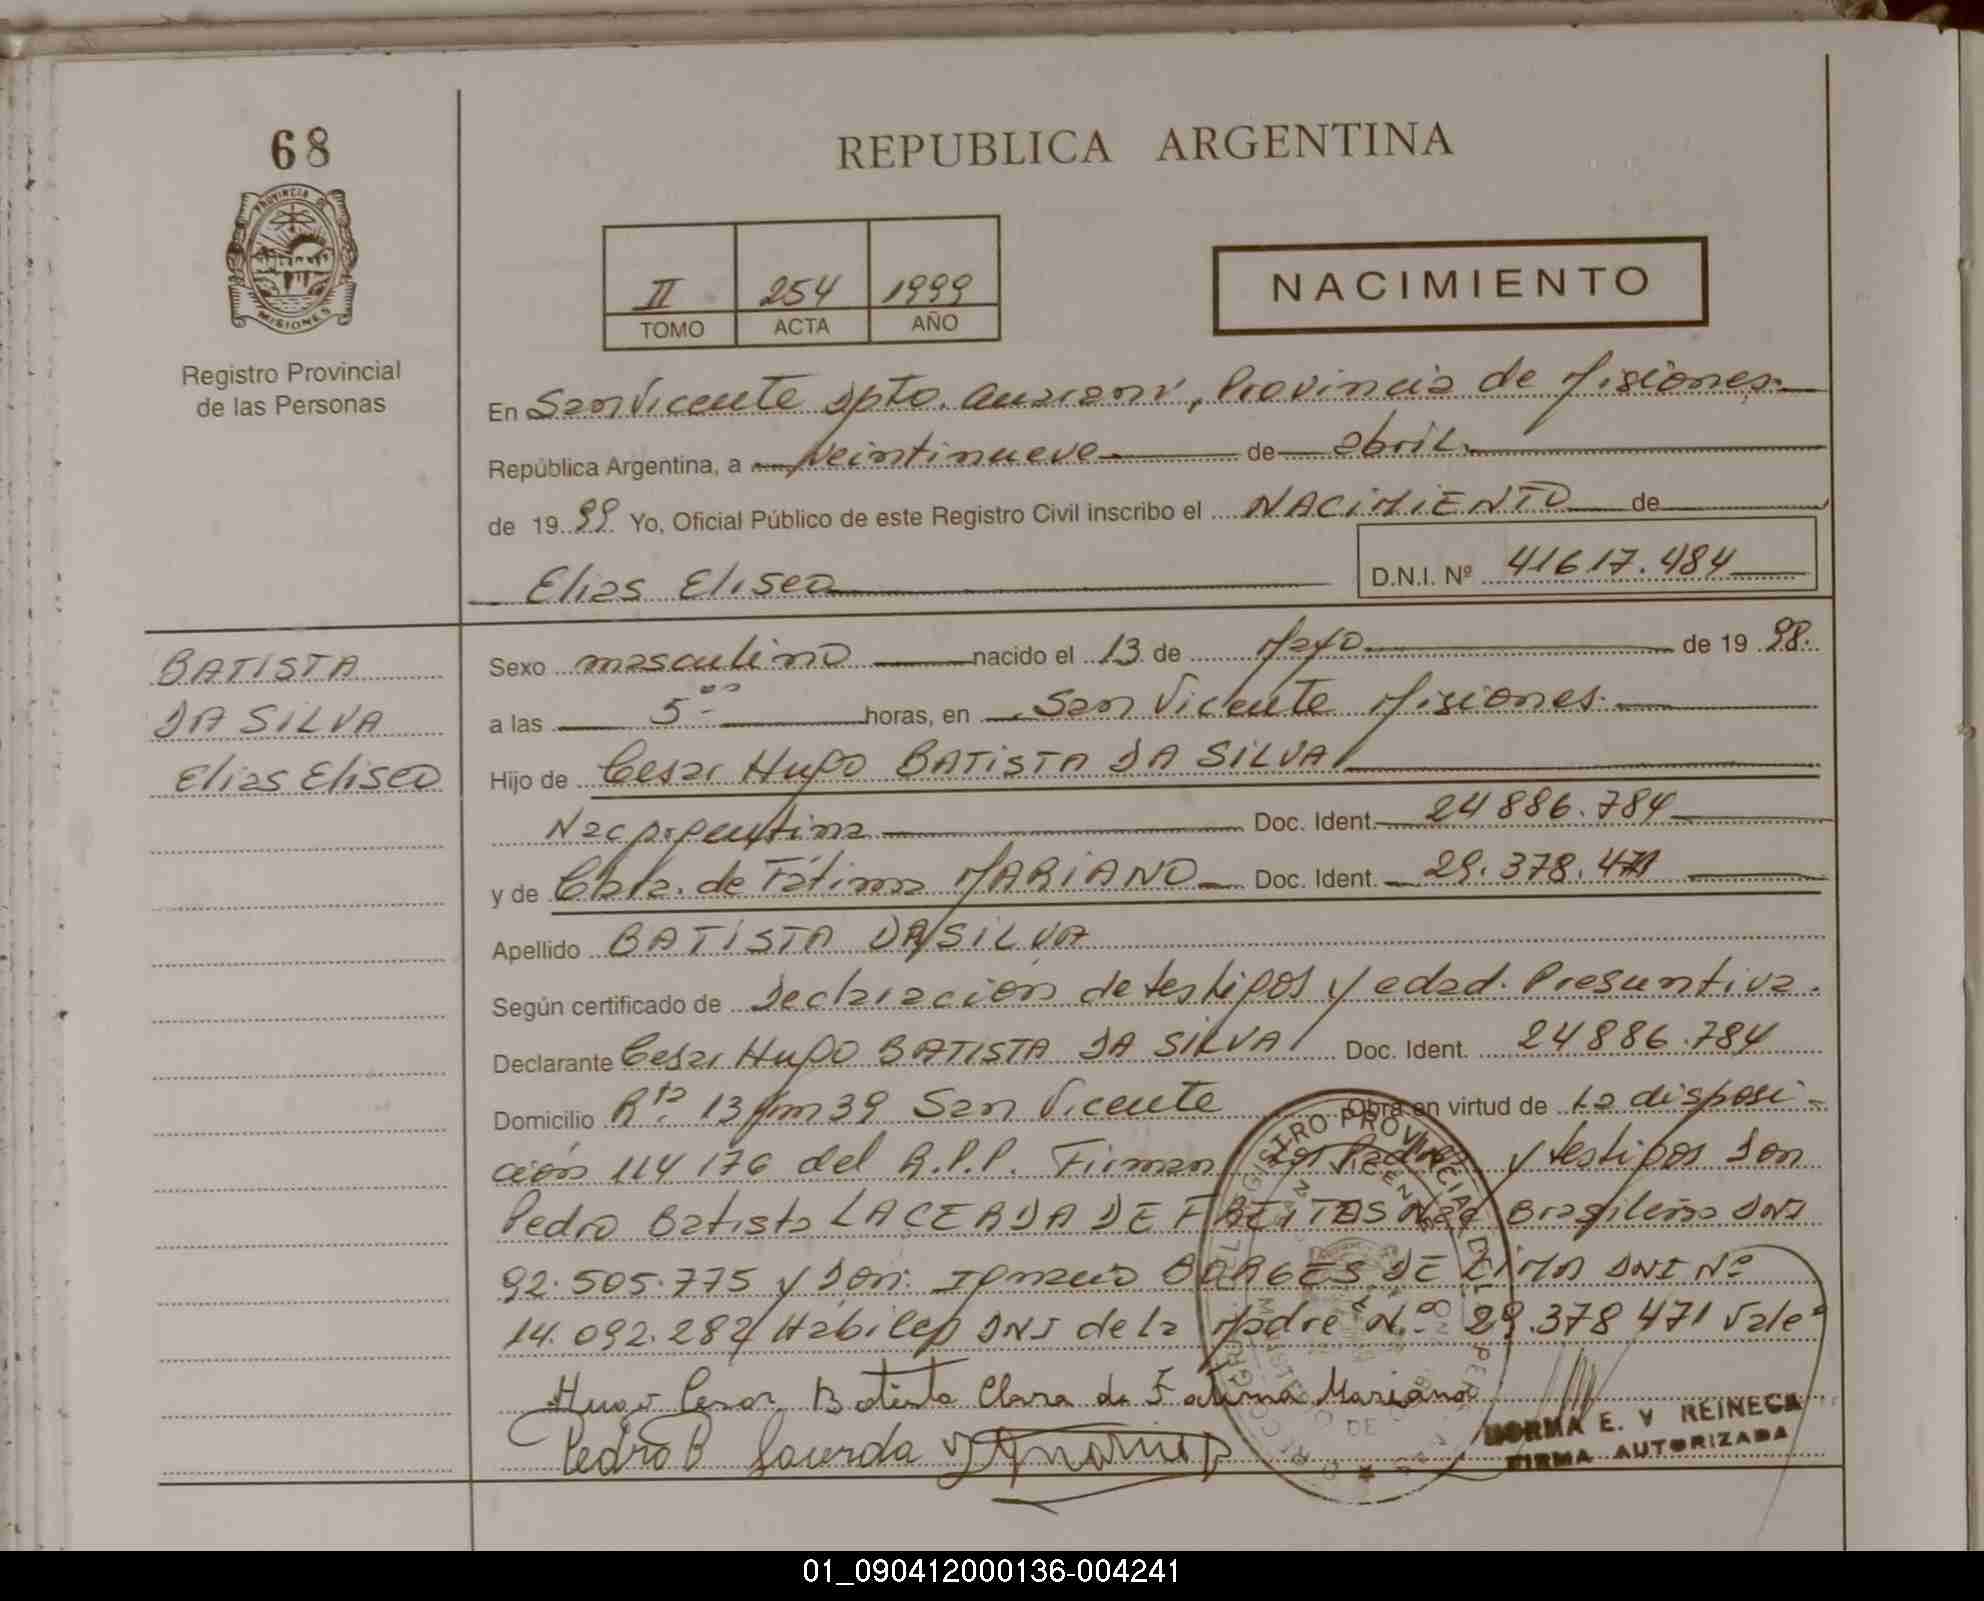 68
REPUBLICA ARGENTINA
PROVINCIA DE
MISIONES
Registro Provincial
de las Personas
II 254 1999
TOMO ACTA AÑO
NACIMIENTO
En San Vicente Dpto. Guaraní, Provincia de Misiones.
República Argentina, a veintinueve de abril.
de 19 99 Yo, Oficial Público de este Registro Civil inscribo el NACIMIENTO de
Elias Eliseo D.N.I. Nº 41617.484
BATISTA
DA SILVA
Elias Eliseo
Sexo masculino nacido el 13 de Mayo de 19 98.
a las 5.00 horas, en San Vicente Misiones.
Hijo de Cesar Hugo BATISTA DA SILVA
Nac Argentina Doc. Ident. 24886.784
y de Clara de Fátima MARIANO Doc. Ident. 29.378.471
Apellido BATISTA DA SILVA
Según certificado de Declaración de testigos y edad Presuntiva.
Declarante Cesar Hugo BATISTA DA SILVA Doc. Ident. 24886.784
Domicilio Rta. 13 Km 39 San Vicente Obra en virtud de la disposi-
ción 114176 del R.P.P. Firman los Padres y testigos Don
Pedro Batista LACERDA DE FREITAS Nac Brasilera DNI
92.505.775 y Don Ignacio BORGES DE LIMA DNI Nº
14.092.282 Habiles DNI de la Madre Nº 29.378471 Vale
Hugo Cesar Batista Clara de Fatima Mariano
Pedro B
REGISTRO PROVINCIAL DE
NORMA E. V REINECK
FIRMA AUTORIZADA
01_090412000136-004241